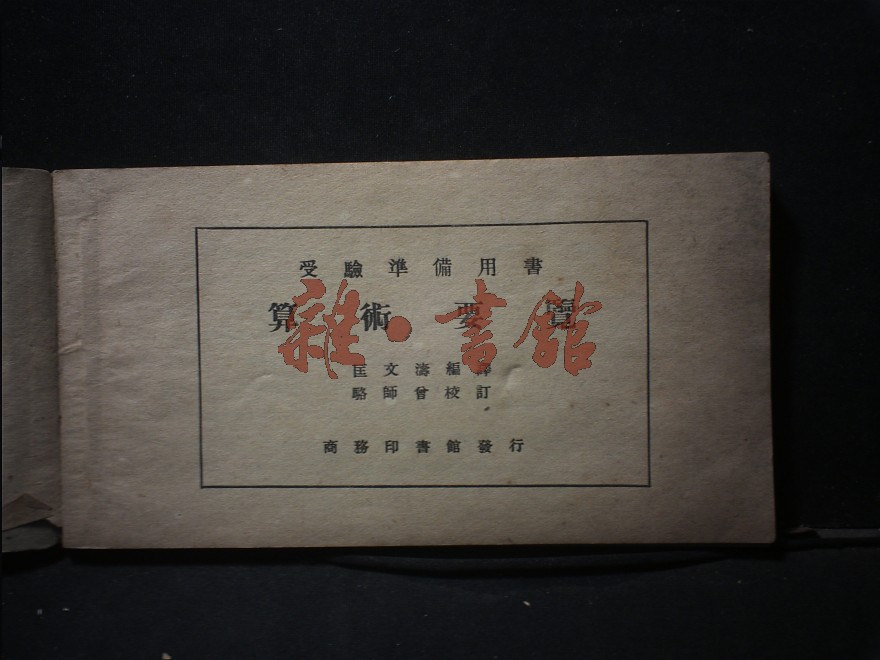 受驗準備用書
算術要覽
雜·書館
匡文濤編譯
駱師曾校訂
商務印書館發行